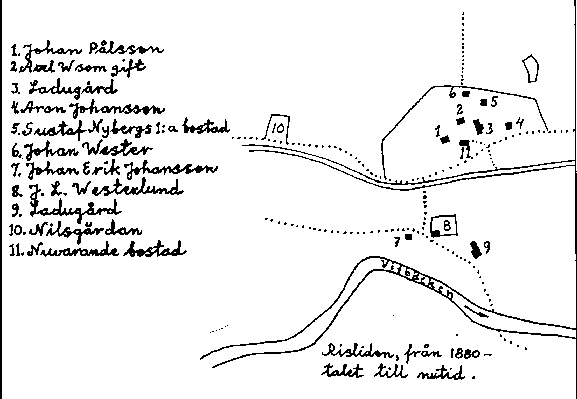 1. Johan Pålsson
2. Axel W som gift
3. Ladugård
4. Aron Johansson
5. Gustaf Nybergs 1:a bostad
6. Johan Wester
7. Johan Erik Johansson
8. J. L. Westerlund
9. Ladugård
10. Nilsgårdan
11. Nuvarande bostad
6
5
2
3
4
1
11
10
8
7
9
Visbäcken
Risliden, från 1880-
talet till nutid.